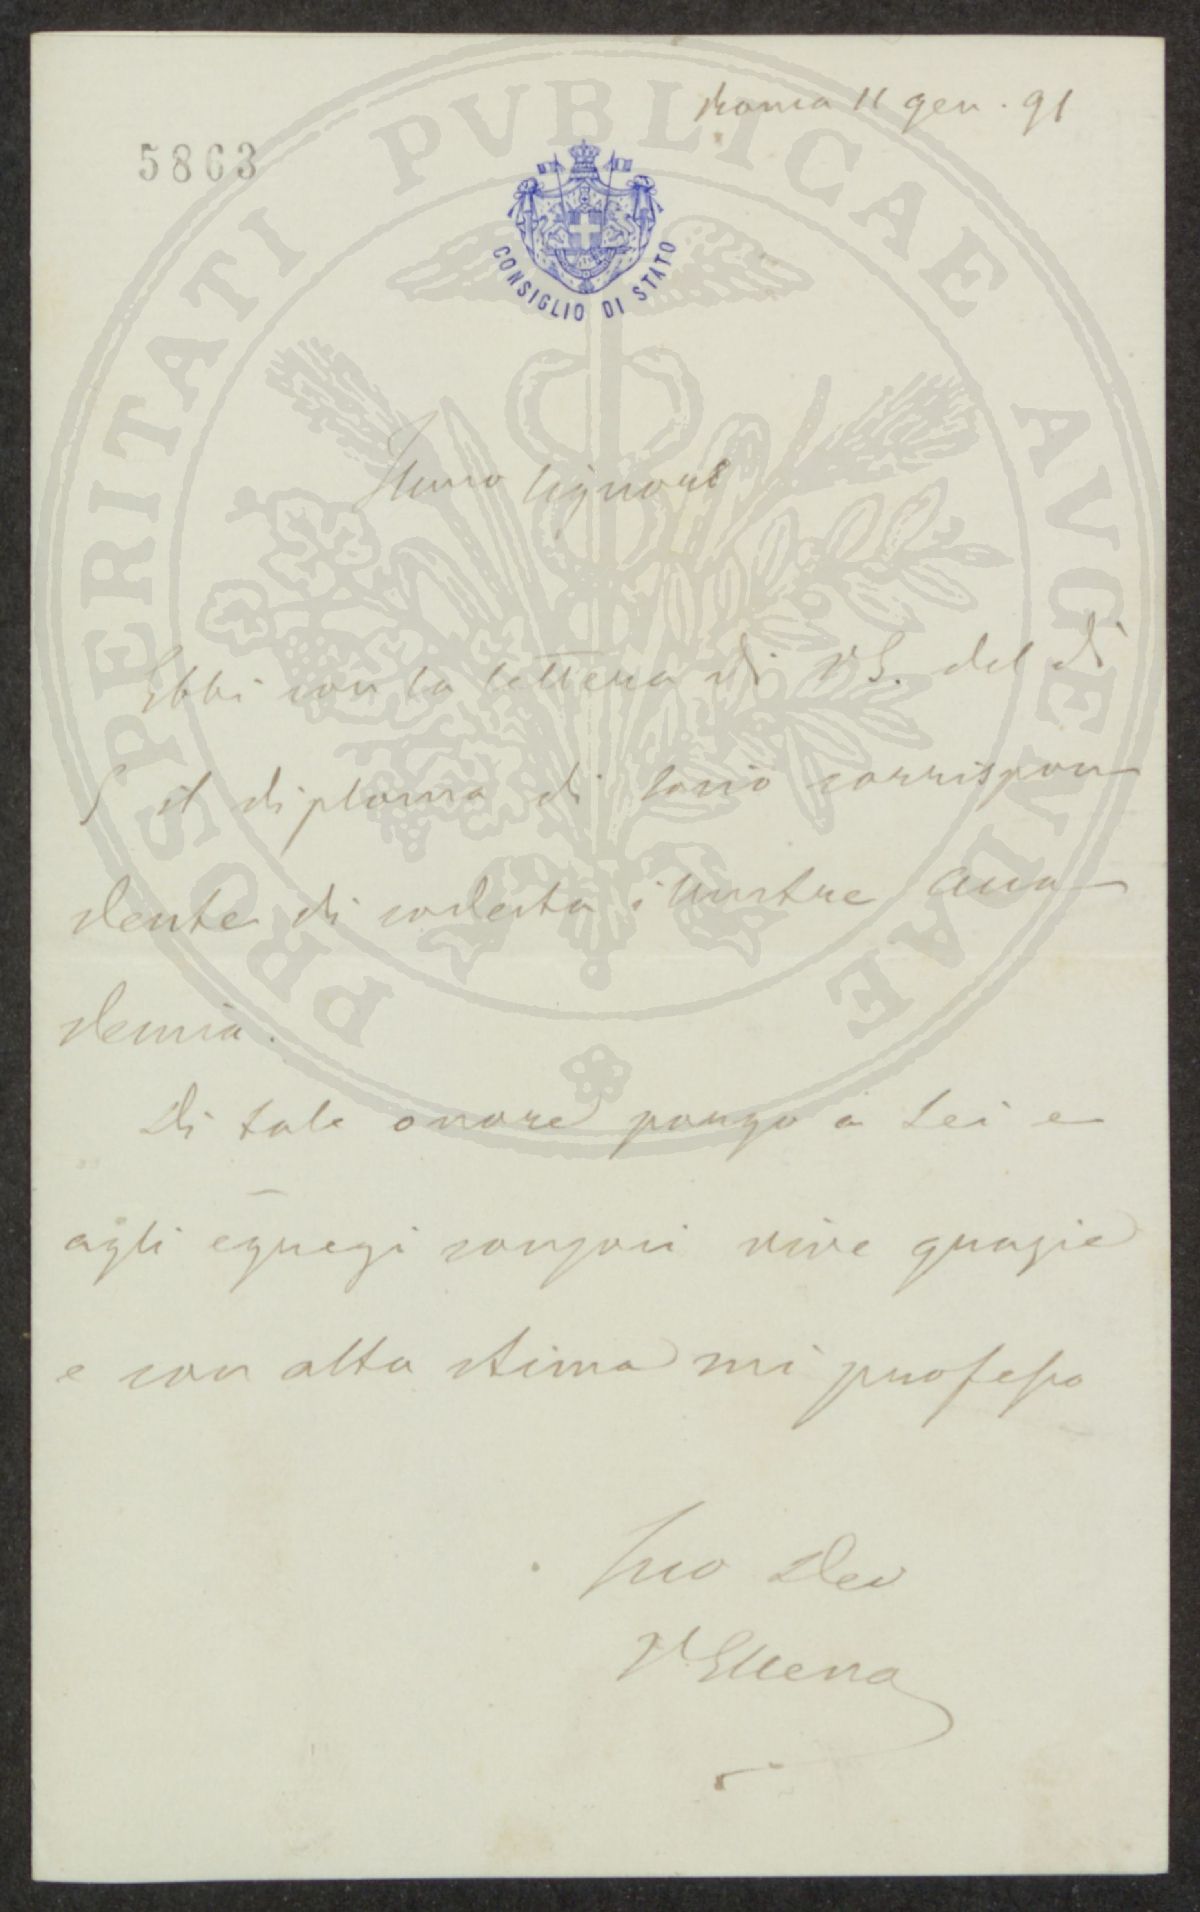 Roma 11 gen. 91
5863
CONSIGLIO DI STATO
PROSPERITATI PVBLICAE AVGENDAE
Illmo Signore
Ebbi con la lettera di VS. del dì
5 il diploma di socio corrispon
dente di codesta illustre Acca
demia.
Di tale onore porgo a Lei e
agli egregi consoci vive grazie
e con alta stima mi professo
Suo Dev
VEllena